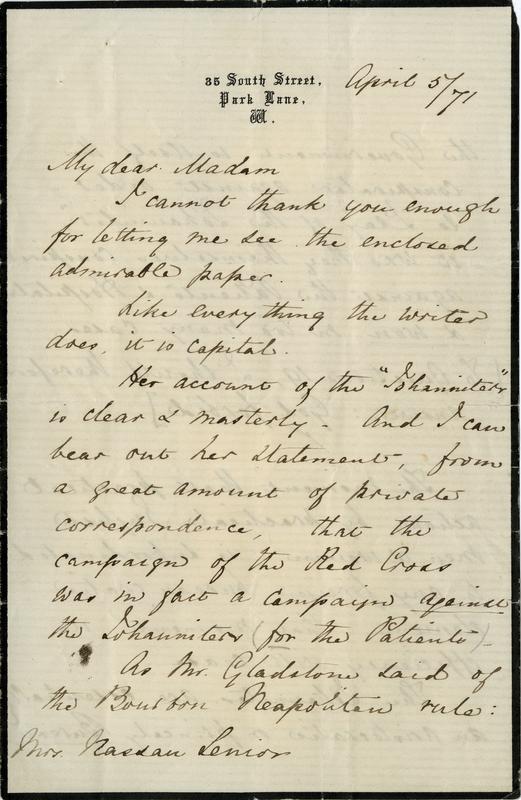 35 South Street,
Park Lane,
W.
April 5/71
My dear Madam
I cannot thank you enough
for letting me see the enclosed
admirable paper.
Like everything the writer
does, it is capital.
Her account of the "Johanniters"
is clear & masterly. And I can
bear out her statement, from
a great amount of private
correspondence, that the
campaign of the Red Cross
was in fact a campaign against
the Johanniters (for the Patients).
As Mr. Gladstone said of
the Bourbon Neapolitan rule:
Mrs. Nassau Senior